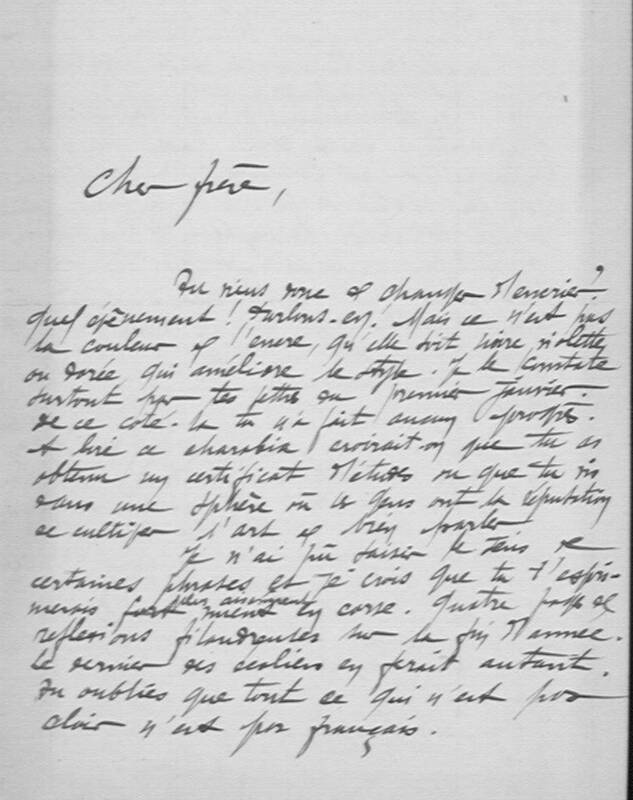 Cher frère,
Tu viens donc de changer d'encrier?
Quel évènement! Parlons-en. Mais ce n'est pas
la couleur de l'encre, qu'elle soit noire, violette
ou dorée, qui améliore le style. Je le constate
surtout par tes lettres du premier janvier.
De ce coté-la tu n'a fait aucun progrès.
A lire ce charabia croirait-on que tu as
obtenu un certificat d'études ou que tu vis
dans une sphère où les gens ont la réputation
de cultiver l'art de bien parler
Je n'ai pu saisir le sens de
certaines phrases et je crois que tu t'expri-
merais plus aisément en corse. Quatre pages de
reflexions filandreuses sur la fin d'année.
Le dernier des écoliers en ferait autant.
Tu oublies que tout ce qui n'est pas
clair n'est pas français.